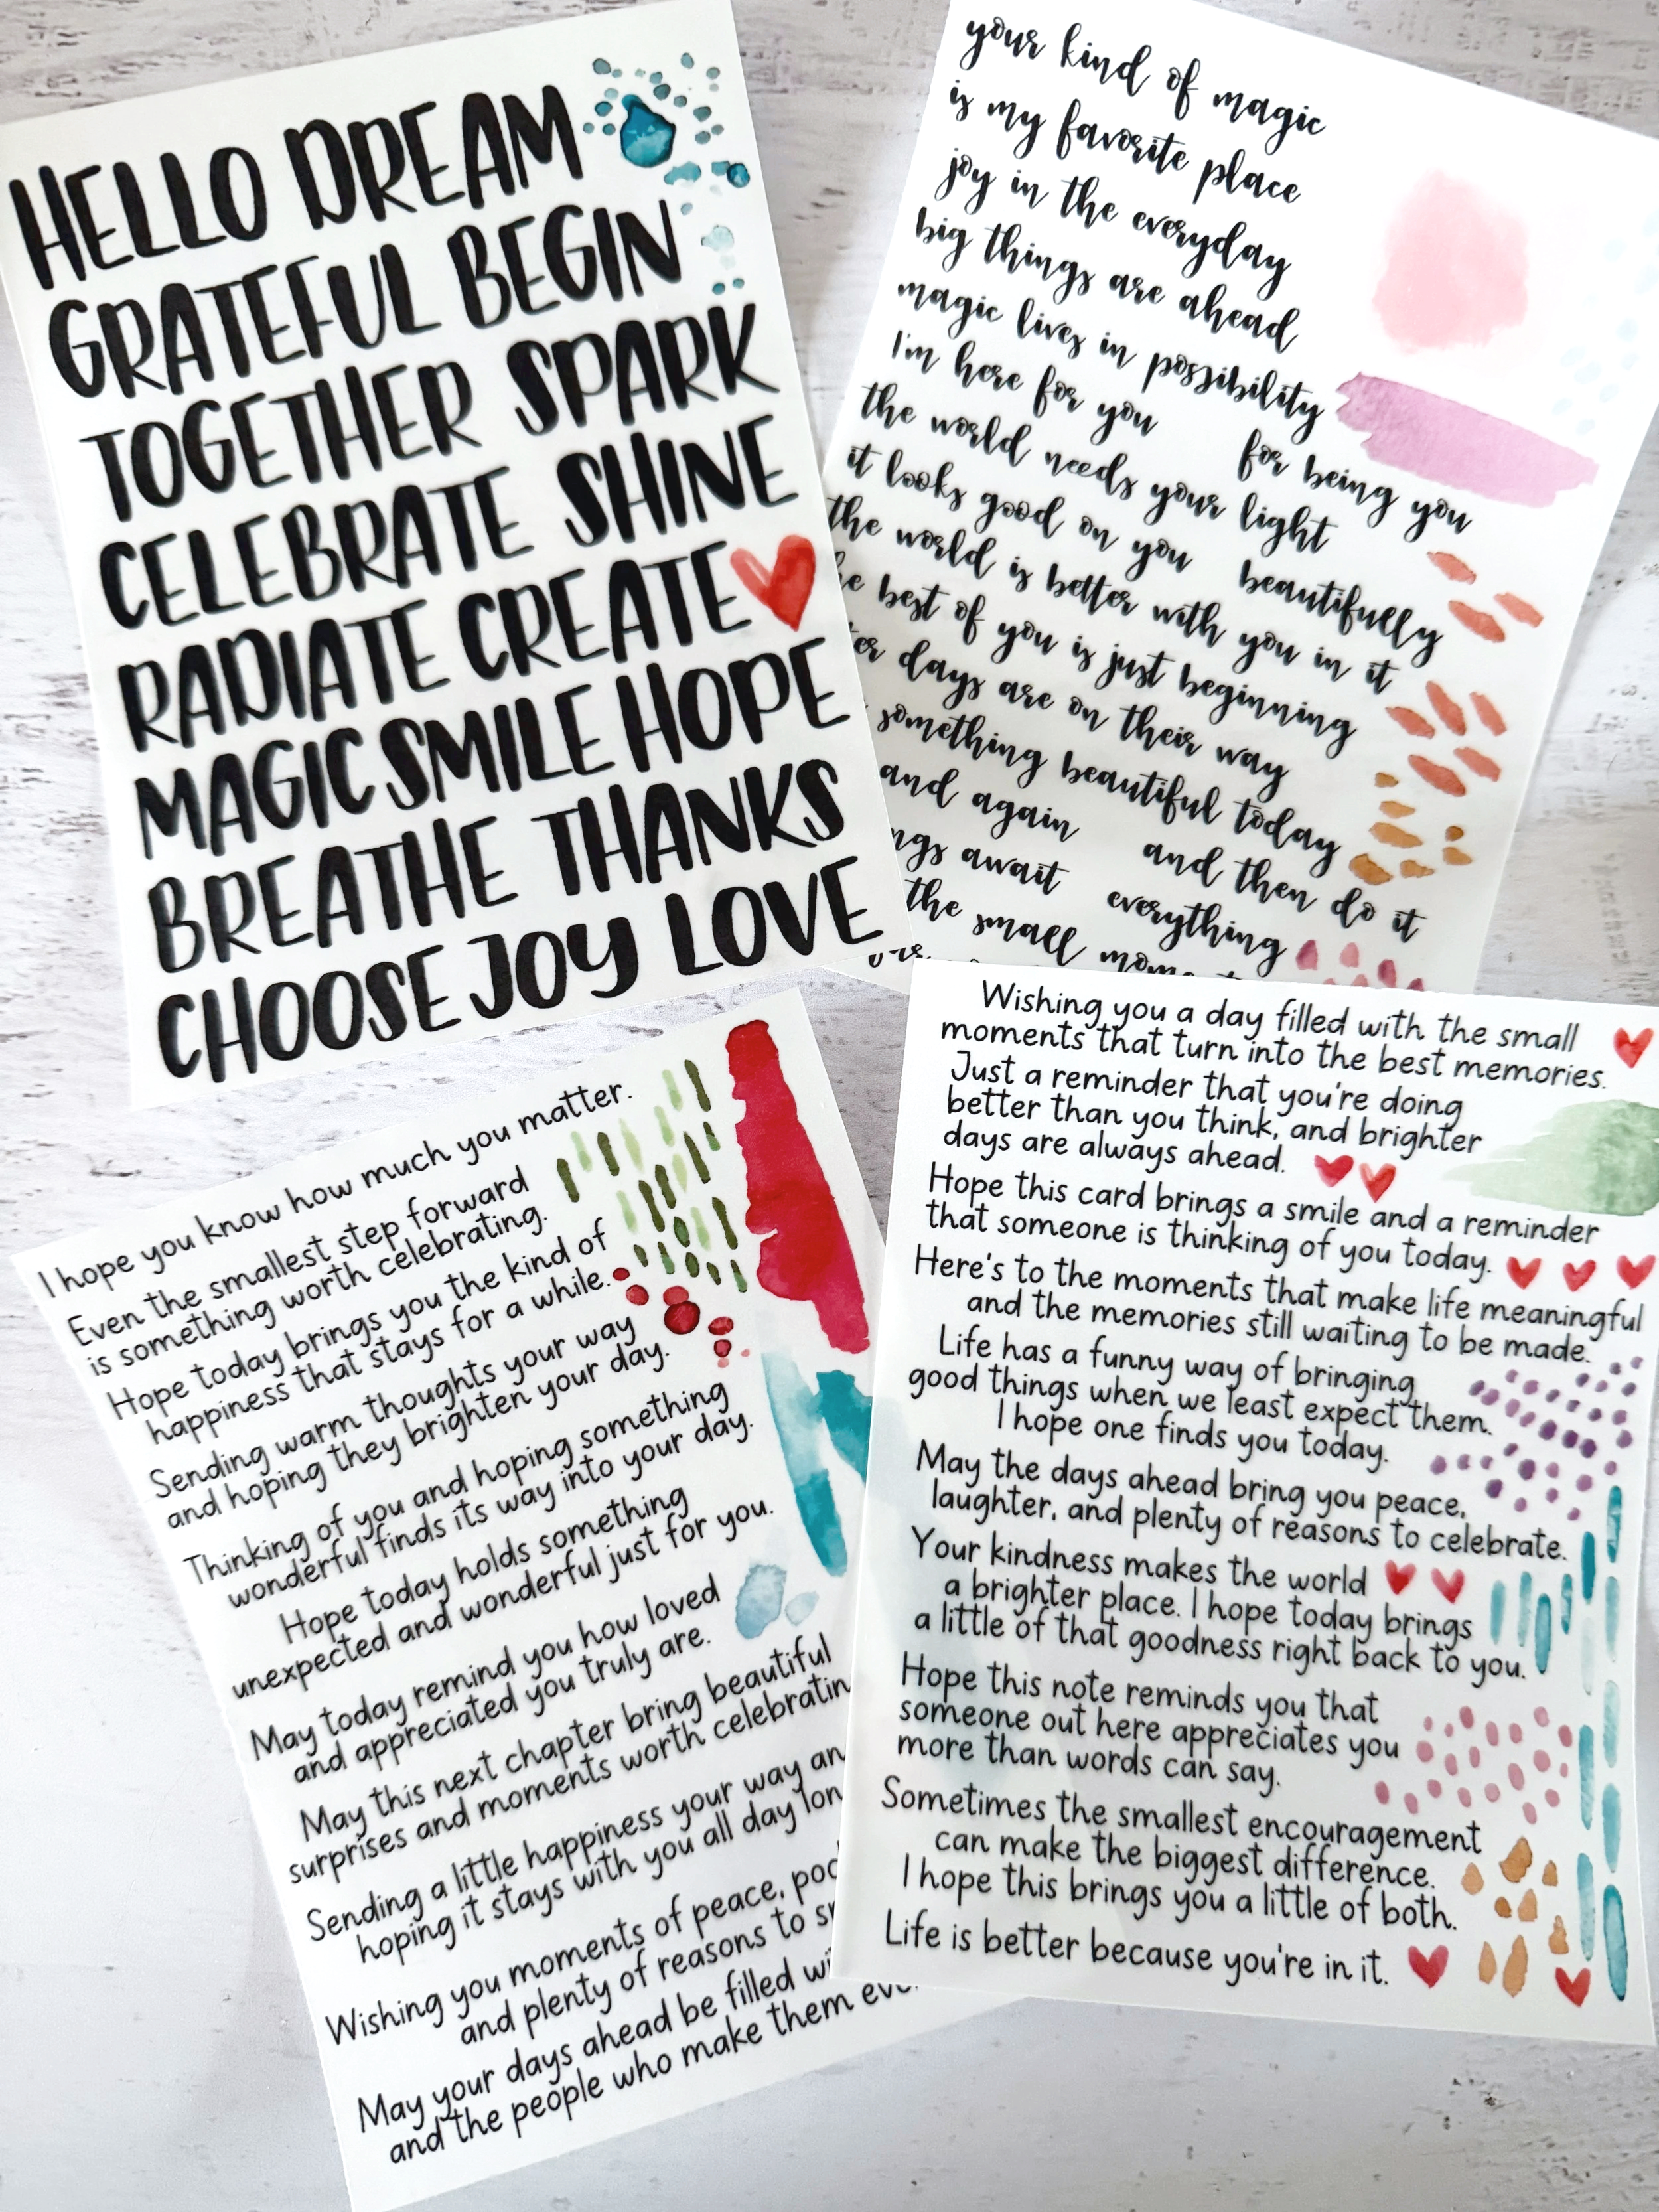 HELLO DREAM
GRATEFUL BEGIN
TOGETHER SPARK
CELEBRATE SHINE
RADIATE CREATE
MAGIC SMILE HOPE
BREATHE THANKS
CHOOSE JOY LOVE
your kind of magic
is my favorite place
joy in the everyday
big things are ahead
magic lives in possibility
I'm here for you
for being you
the world needs your light
it looks good on you
beautifully
the world is better with you in it
best of you is just beginning
days are on their way
something beautiful today
and again
and then do it
await
everything
the small
I hope you know how much you matter.
Even the smallest step forward
is something worth celebrating.
Hope today brings you the kind of
happiness that stays for a while.
Sending warm thoughts your way
and hoping they brighten your day.
Thinking of you and hoping something
wonderful finds its way into your day.
Hope today holds something
unexpected and wonderful just for you.
May today remind you how loved
and appreciated you truly are.
May this next chapter bring beautiful
surprises and moments worth
Sending a little happiness your way
hoping it stays with you all day
Wishing you moments of peace,
and plenty of reasons to
May your days ahead be filled
and the people who make them
Wishing you a day filled with the small
moments that turn into the best memories.
Just a reminder that you're doing
better than you think, and brighter
days are always ahead.
Hope this card brings a smile and a reminder
that someone is thinking of you today.
Here's to the moments that make life meaningful
and the memories still waiting to be made.
Life has a funny way of bringing
good things when we least expect them.
I hope one finds you today.
May the days ahead bring you peace,
laughter, and plenty of reasons to celebrate.
Your kindness makes the world
a brighter place. I hope today brings
a little of that goodness right back to you.
Hope this note reminds you that
someone out here appreciates you
more than words can say.
Sometimes the smallest encouragement
can make the biggest difference.
I hope this brings you a little of both.
Life is better because you're in it.